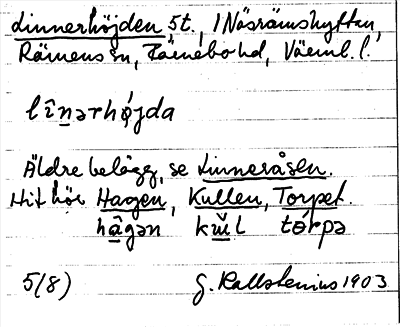 Linnerhöjden, 5t., i Näsrämshyttan,
Rämens sn, Färnebo hd, Värml. l.
lînərhø̀jda
Äldre belägg, se Linneråsen.
Hit hör Hagen, Kullen, Torpet.
hâgən kŭl tórpə
5(8) G. Kallstenius 1903